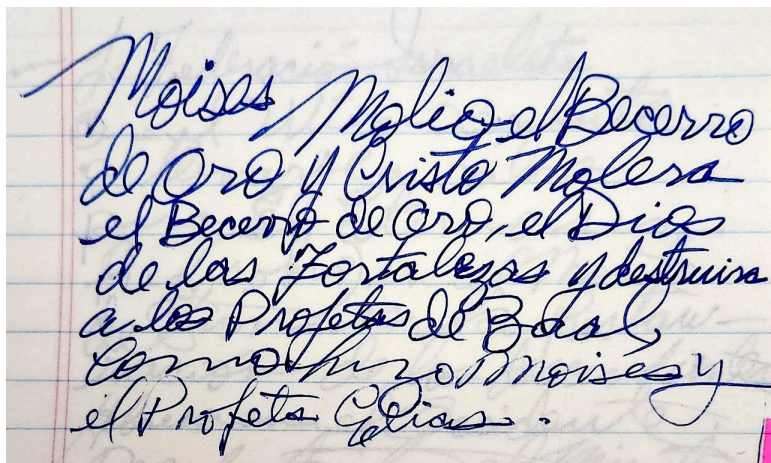 Moises Molio el Becerro
de Oro y Cristo Molera
el Becerro de Oro, el Dios
de las Fortalezas y destruira
a los Profetas de Baal,
Como hizo Moisés y
el Profeta Elias.